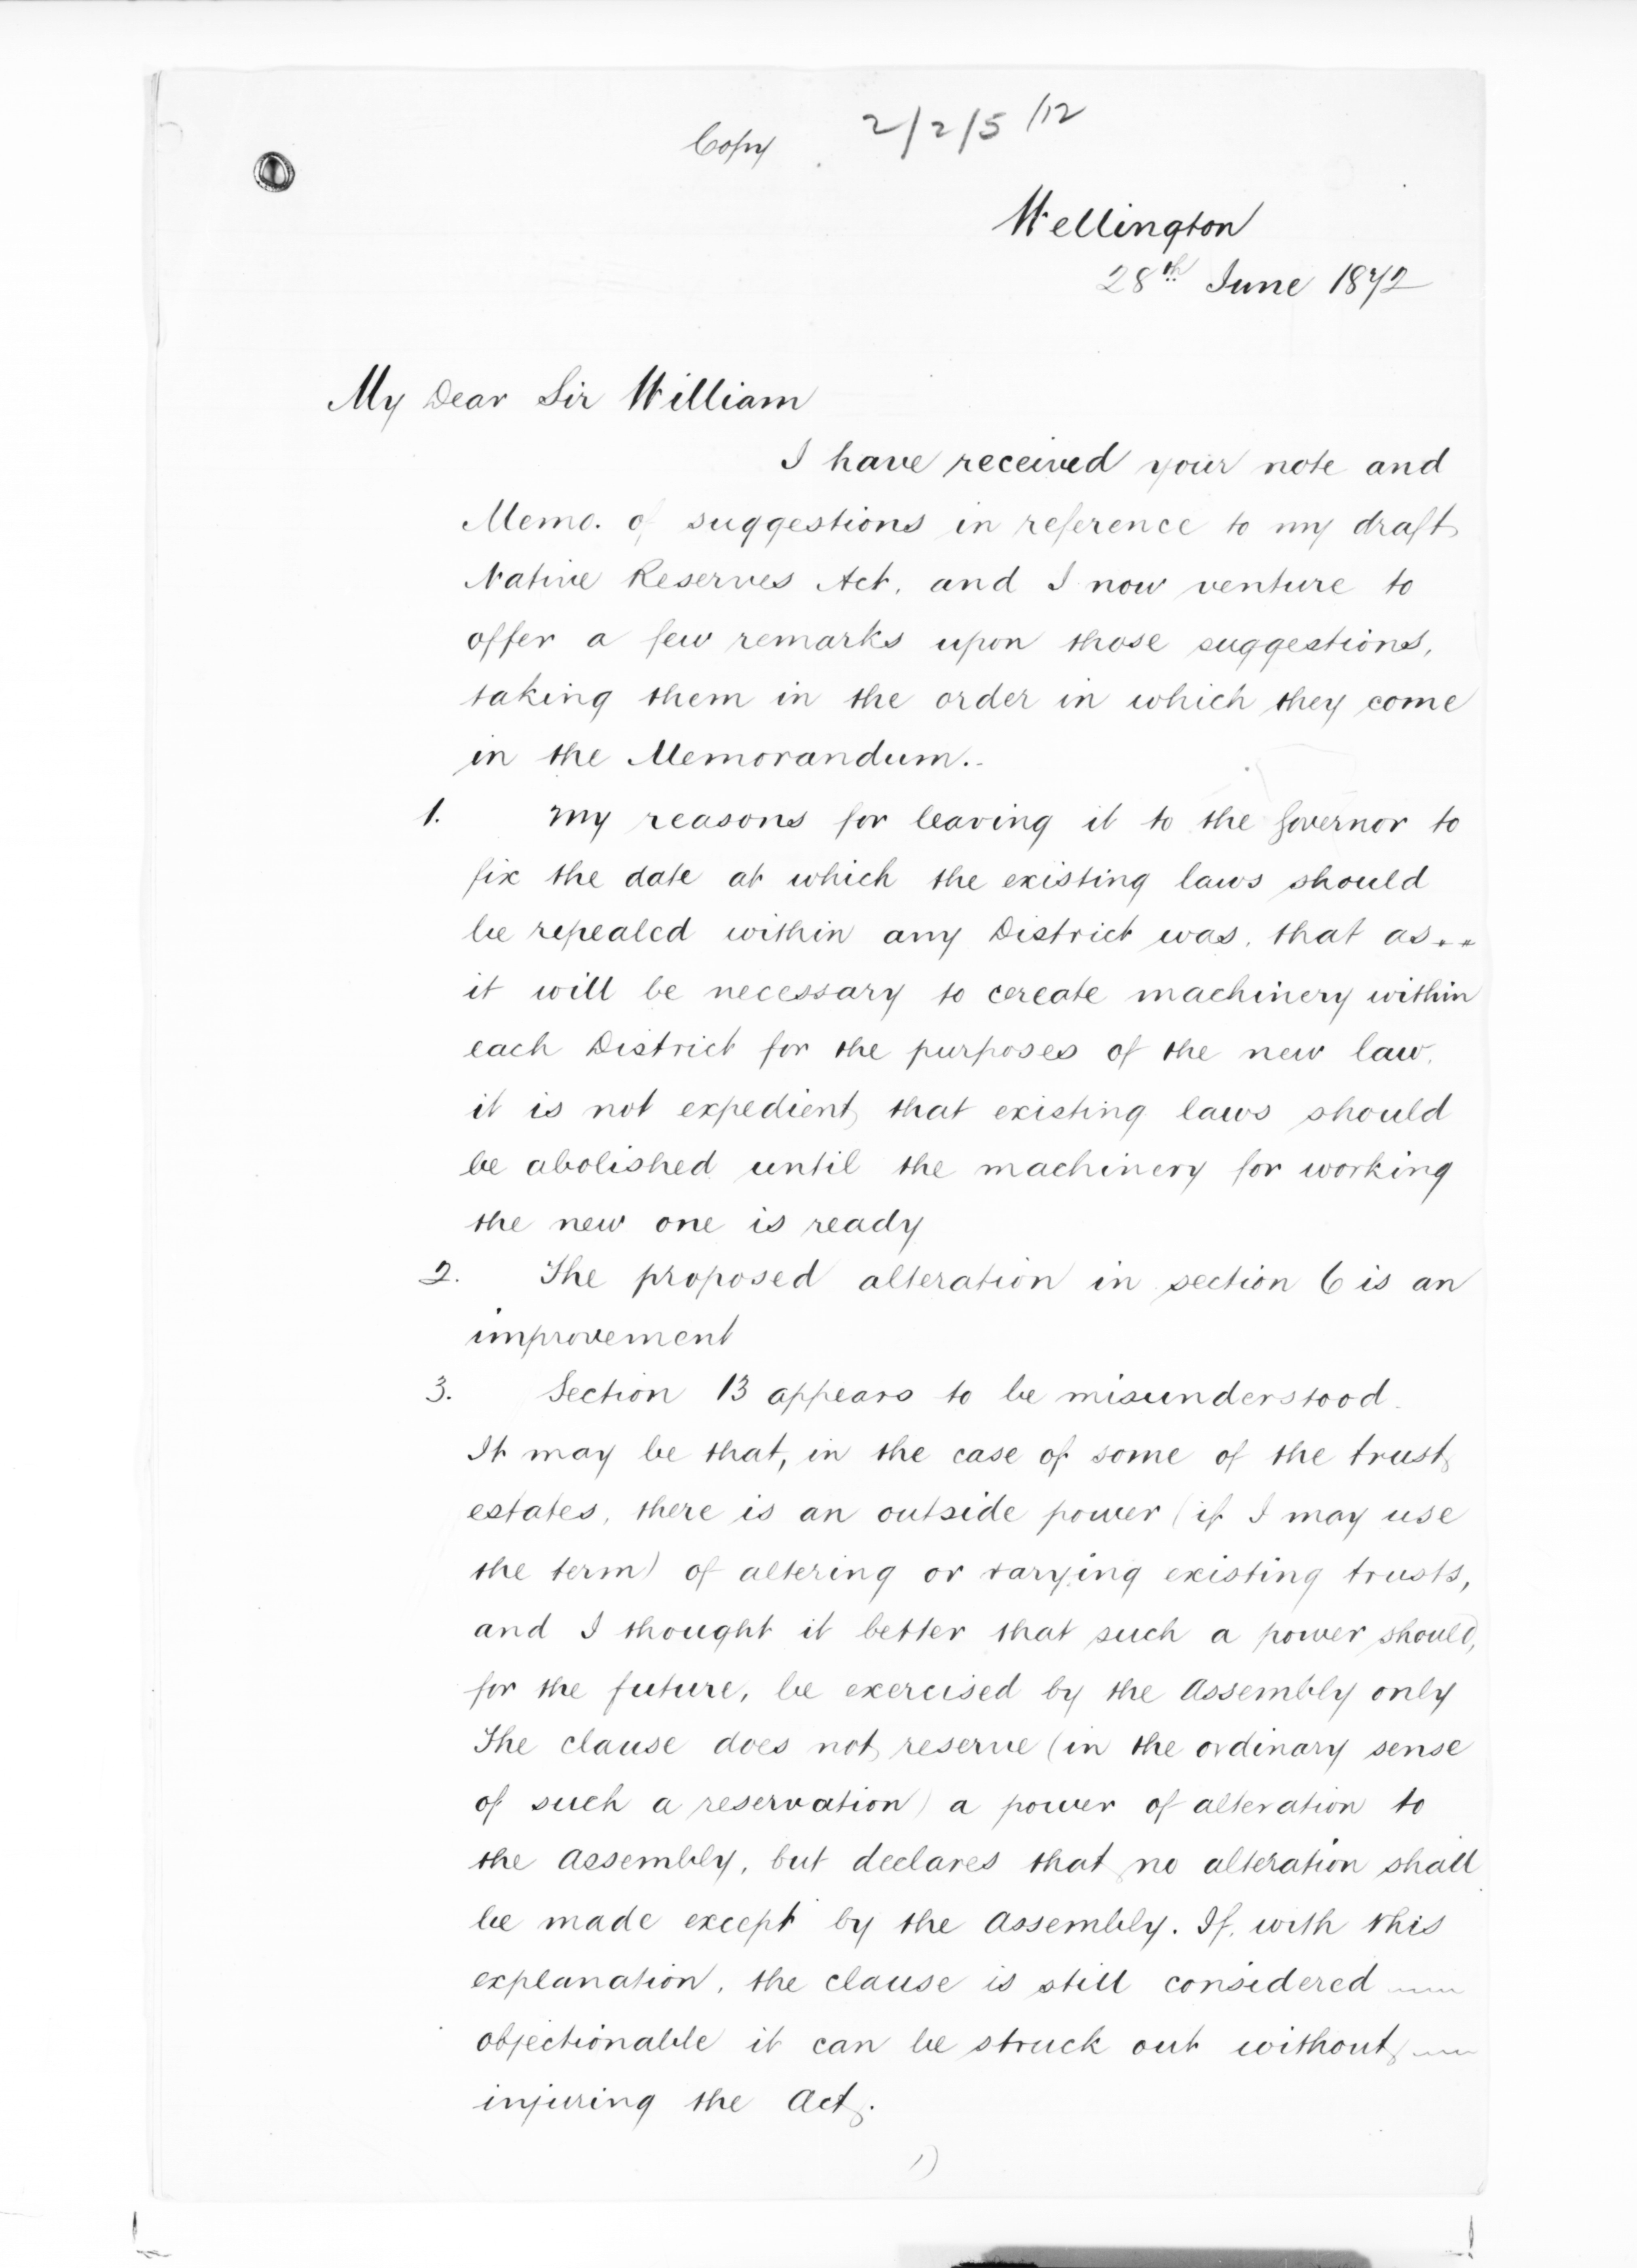 Copy 2/2/5/12
Wellington
28th June 1872
My Dear Sir William
I have received your note and
Memo. of suggestions in reference to my draft
Native Reserves Act, and I now venture to
offer a few remarks upon those suggestions,
taking them in the order in which they come
in the Memorandum.
1. My reasons for leaving it to the Governor to
fix the date at which the existing laws should
be repealed within any District was, that as
it will be necessary to cereate machinery within
each District for the purposes of the new law,
it is not expedient that existing laws should
be abolished until the machinery for working
the new one is ready
2. The proposed alteration in section 6 is an
improvement
3. Section 13 appears to be misunderstood.
It may be that, in the case of some of the trust
estates, there is an outside power (if I may use
the term) of altering or varying existing trusts,
and I thought it better that such a power should,
for the future, be exercised by the Assembly only
The clause does not reserve (in the ordinary sense
of such a reservation) a power of alteration to
the Assembly, but declares that no alteration shall
be made except by the Assembly. If, with this
explanation, the clause is still considered
objectionable it can be struck out without
injuring the Act.
1)